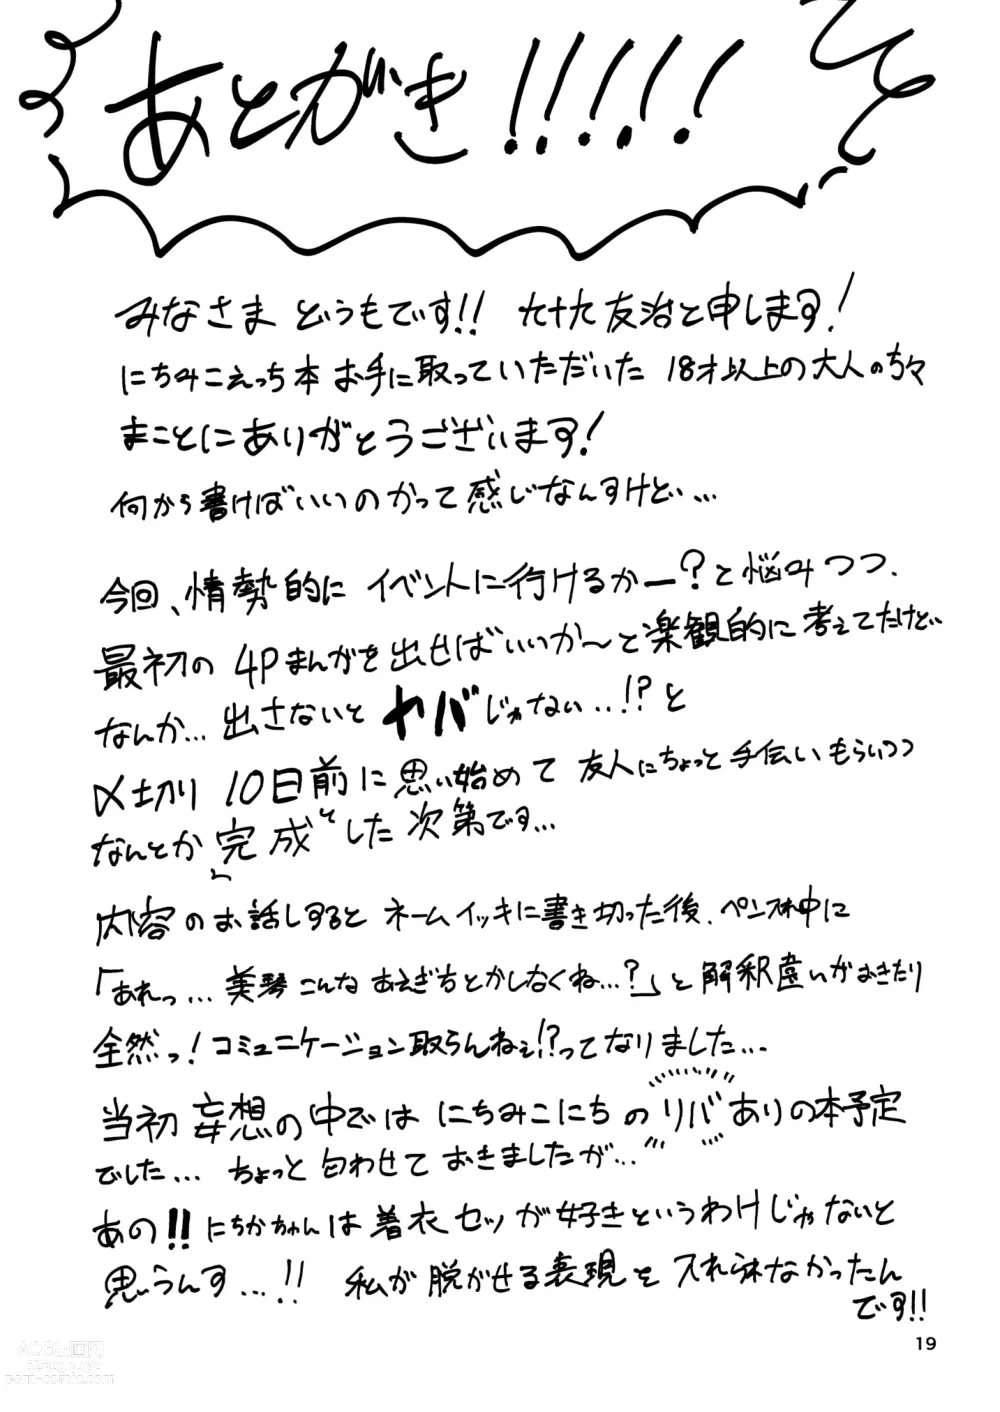 あとがき!!!!!
みなさま どうもです!! 九十九友治と申します!
にちみこえっち本 お手に取っていただいた 18才以上の大人の方々
まことにありがとうございます!
何から書けばいいのかって感じなんすけど…
今回、情勢的に イベントに行けるかー?と悩みつつ、
最初の 4Pまんがを出せばいいか〜と楽観的に考えてたけど…
なんか… 出さないと ヤバじゃない…!?と
〆切り 10日前に思い始めて 友人にちょっと手伝いもらいつつ
なんとか完成とした次第です…
内容のお話しすると ネームイッキに書き切った後、ペン入れ中に
「あれっ… 美琴こんな あえぎ とかしなくね…?」と 解釈違いがおきたり
全然っ! コミュニケーション取らんねぇ!?ってなりました…
当初 妄想の中では にちみこにちの リバありの本予定
でした… ちょっと 匂わせて おきましたが…
あの!! にちかちゃんは 着衣セッが好きというわけじゃないと
思うんす…!! 私が 脱がせる表現を 入れられなかったん
です!!
19
porn-comic.com